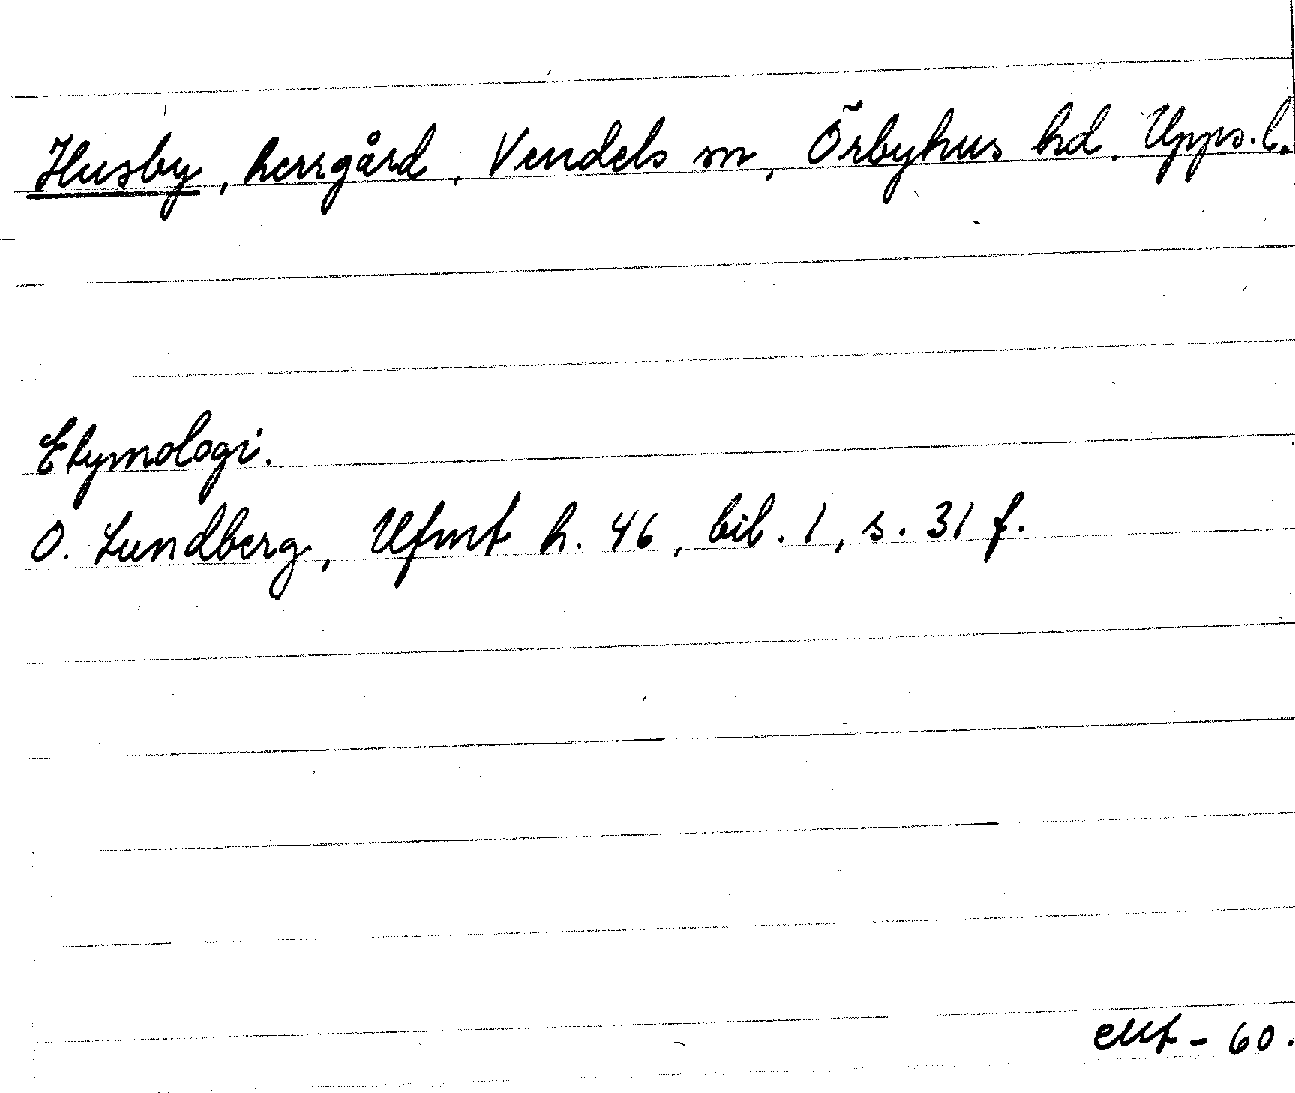 Husby, herrgård, Vendels sn, Örbyhus hd. Upps. l.
Etymologi.
O. Lundberg, Ufmt h. 46, bil. 1, s. 31 f.
- 60.